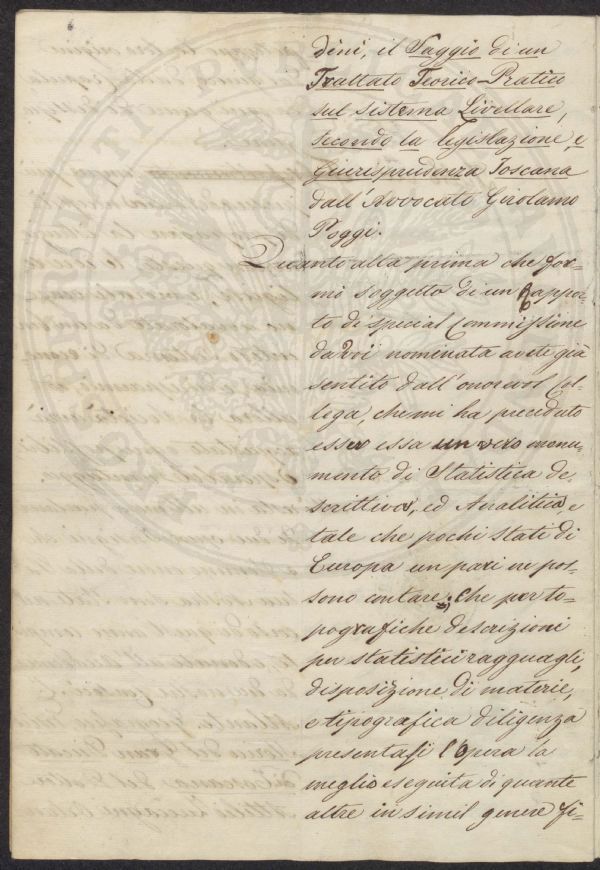 dini, il Saggio di un
Trattato Teorico-Pratico
sul sistema Livellare,
secondo la legislazione e
Giurisprudenza Toscana
dall'Avvocato Girolamo
Poggi.
Quanto alla prima che for-
mò soggetto di un Rappor-
to di special Commissione
da Voi nominata avete già
sentito dall'onorevol Col-
lega, che mi ha preceduto
esser essa un vero monu-
mento di Statistica de-
scrittiva, ed Analitica e
tale che pochi stati di
Europa un pari ne pos-
sono contare; Che per to-
pografiche descrizioni
per statistici ragguagli,
disposizione di materie,
e tipografica diligenza
presentasi l'Opera la
meglio eseguita di quante
altre in simil genere fi-